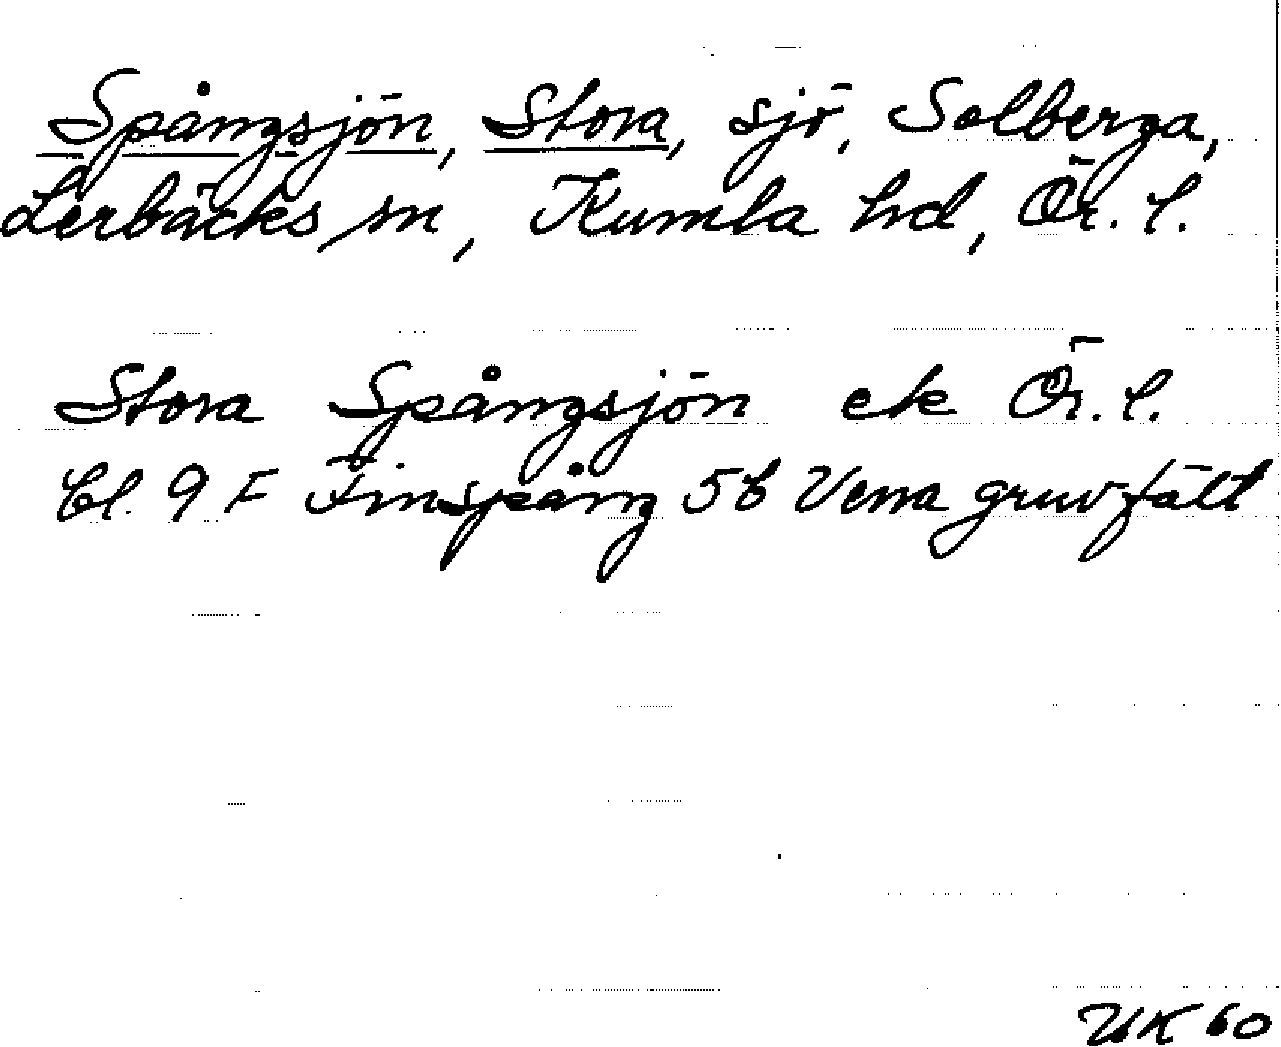 Spångsjön, Stora, sjö, Solberga,
Lerbäcks sn, Kumla hd, Ör. l.
Stora Spångsjön ek Ör. l.
Bl. 9 F Finspång 5b Vena gruvfält
UK 60